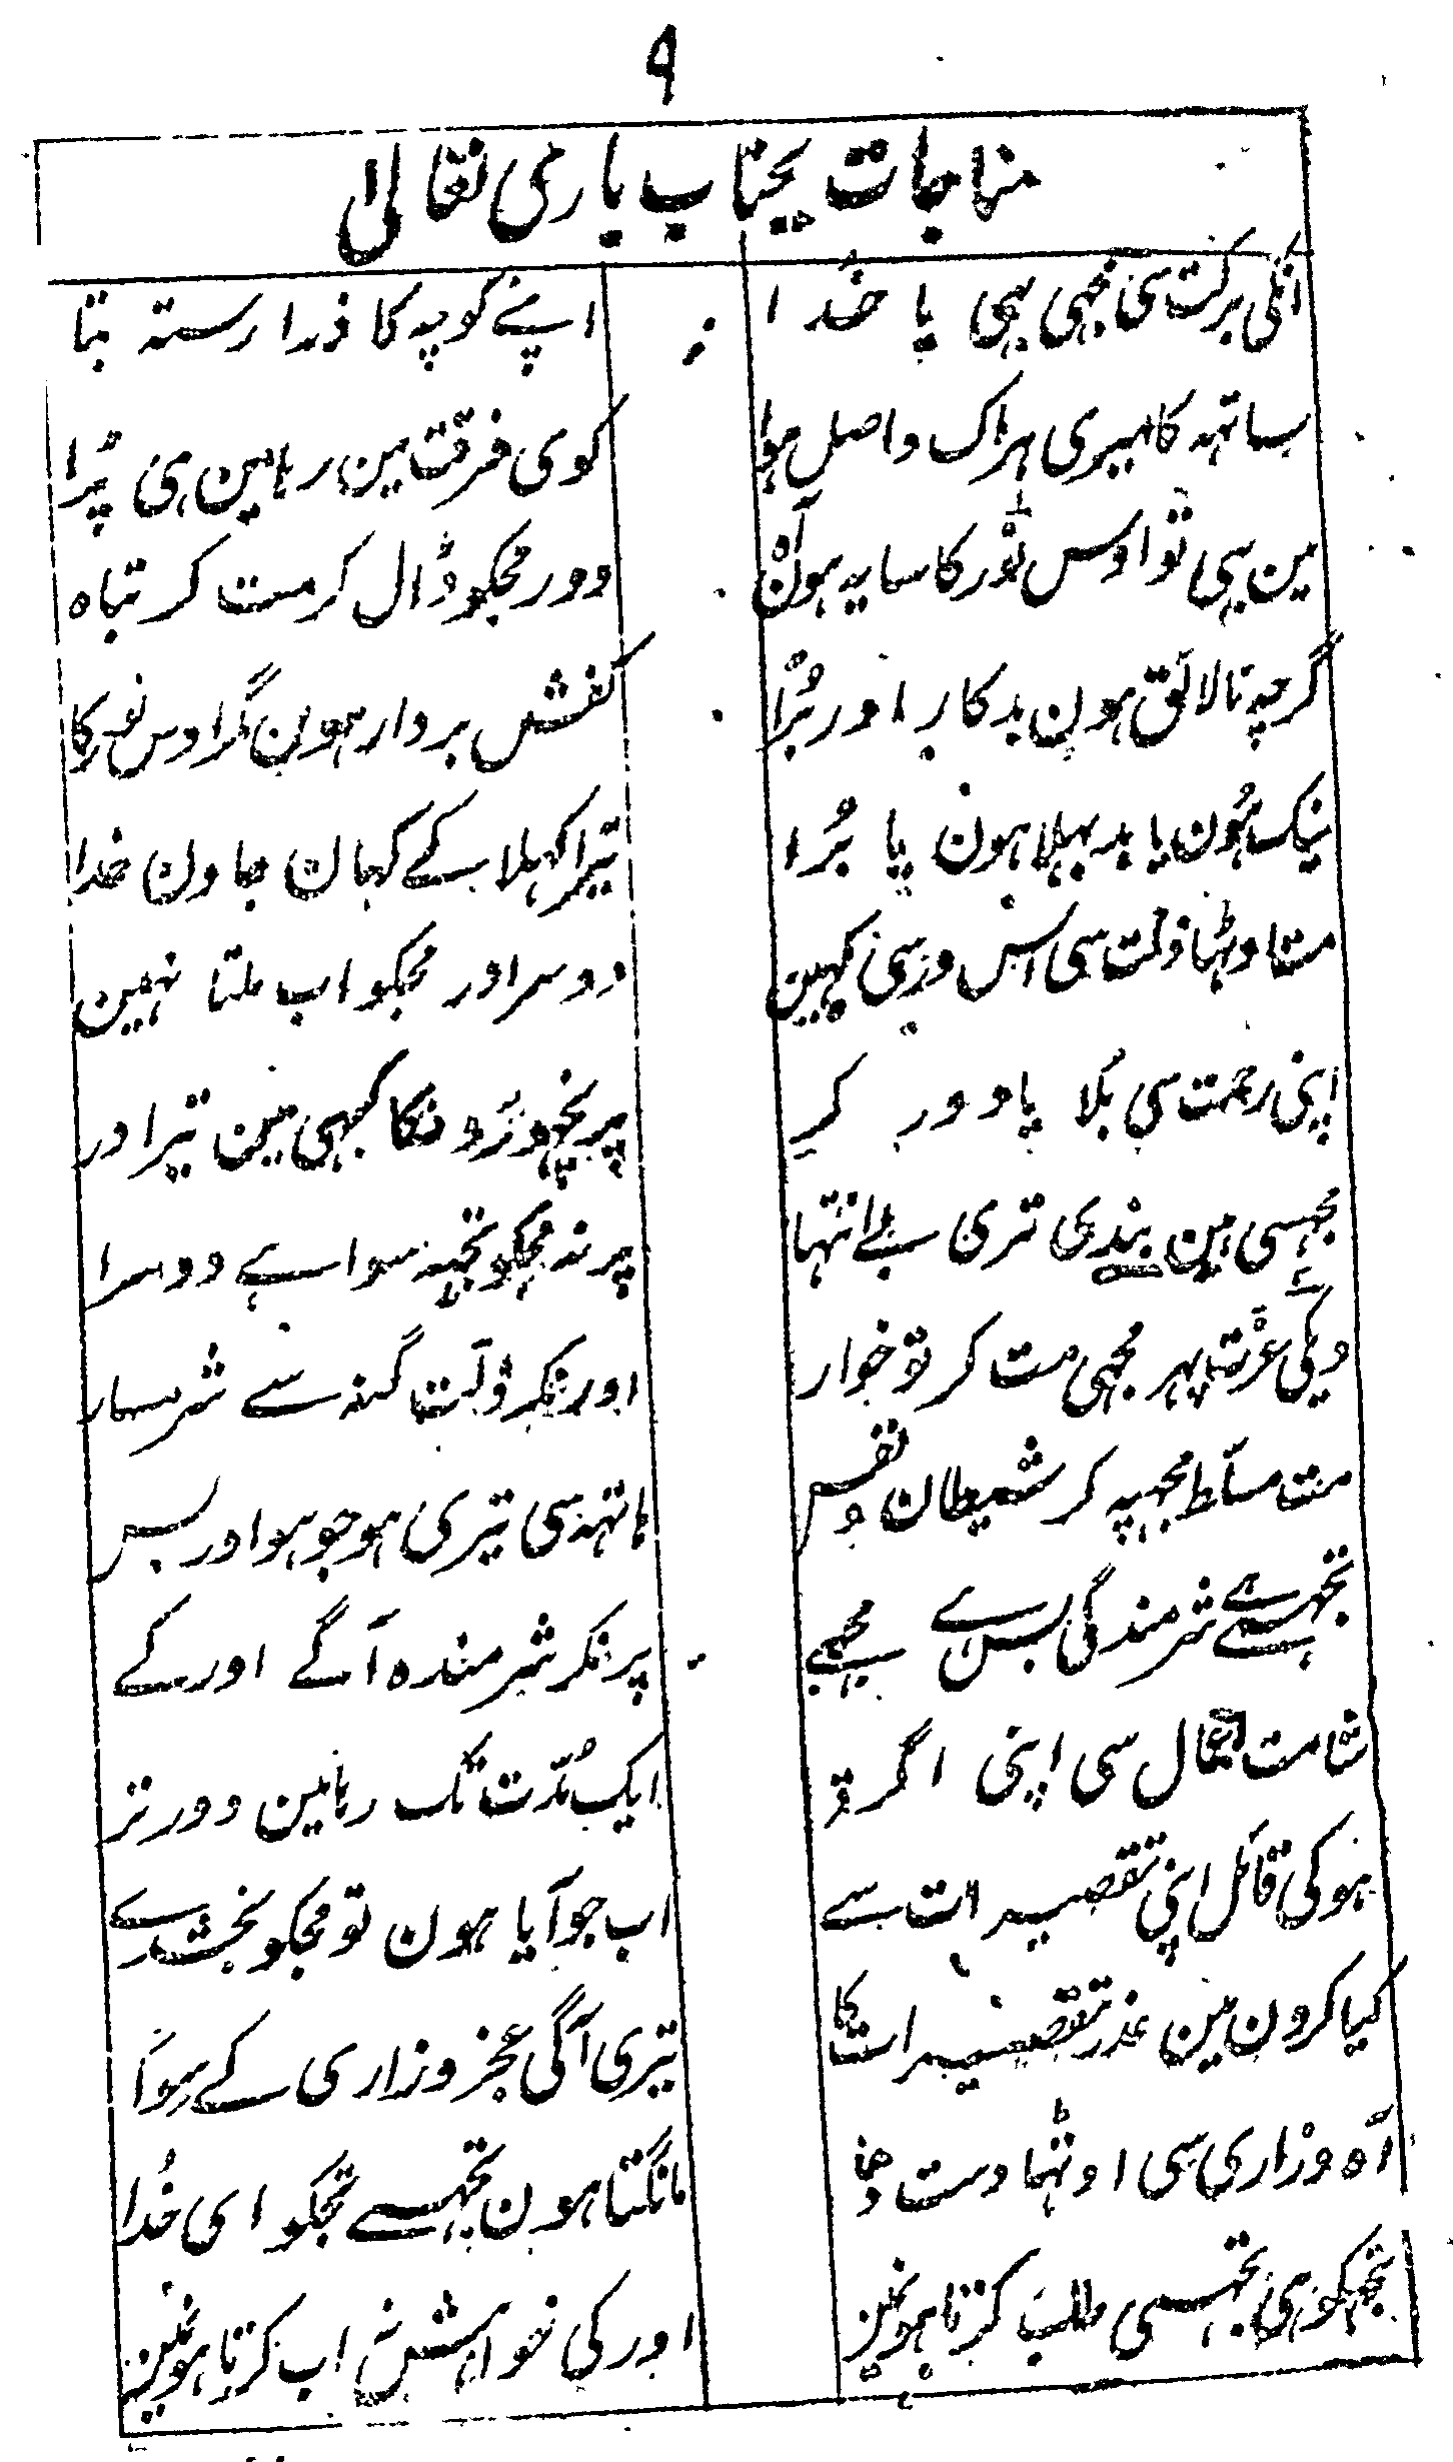 ۹
مناجات بجناب باری تعالیٰ
انکی برکت سی مجھی بھی یا خُدا اپنے کوچہ کا ذرا رستہ بتا
ساتہہ کا میری ہر اک واصل ہوا کوی فرقت مین رہا مین ہی پُرا
مین بھی تو اوس نُور کا سایہ ہون آہ دور مجکو ڈال کر مت کر تباہ
گرچہ نالائق ہون بدکار اور بُرا کفش بردار ہون مگر اوس نور کا
نیک ہُون یا بد بہلا ہون یا بُرا تیرا کہلا کے کہان جاون خدا
مت اوٹہا ذلت سی اس در سی کہین دوسرا در مجکو اب ملتا نہین
اپنی رحمت سی بُلا یا دور کر پر نچھوڑونگا کبہی مین تیرا در
مجہسی ہین بندی تری بے انتہا پر نہ مجکو تجہہ سوا ہے دوسرا
دیکی عزّت پہر مجھی مت کر تو خوار اور نکر ذلّت گنہ سے شرمسار
مت مسلّط مجہپہ کر شیطان و نفس ہاتہہ سی تیری ہو جو ہو اور بس
تجہسے ہے شرمندگی بس رے مجھے پر نکر شرمندہ آگے اور کے
شامت اعمال سی اپنی اگر ایک مُدّت تک رہا مین دور تر
ہوکی قائل اپنی تقصیرات سے اب جو آیا ہون تو مجکو بخش دے
کیا کرون مین عذر تقصیرات کا تیری آگی عجز و زاری کے سِوا
آہ و زاری سی اوٹہا دست دعا مانگتا ہون تجہسے تجکو ای خُدا
تجہکو ہی تجہسی طلب کرتا ہون مین اور کی خواہش نہ اب کرتا ہون مین